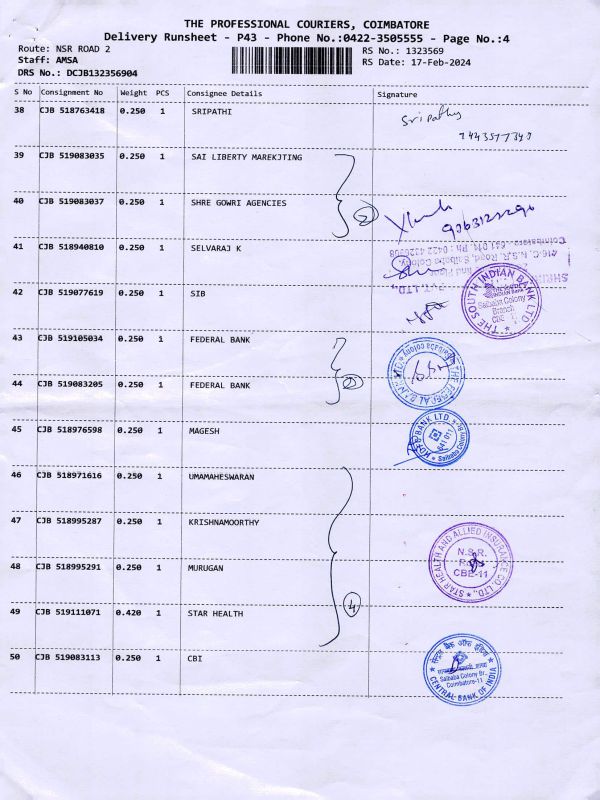 THE PROFESSIONAL COURIERS, COIMBATORE
Delivery Runsheet - P43 - Phone No.:0422-3505555 - Page No.:4
Route: NSR ROAD 2
RS No.: 1323569
Staff: AMSA
RS Date: 17-Feb-2024
DRS No.: DCJB132356904
S No Consignment No Weight PCS Consignee Details Signature
38 CJB 518763418 0.250 1 SRIPATHI
Sripathy
39 CJB 519083035 0.250 1 SAI LIBERTY MAREKJTING
40 CJB 519083037 0.250 1 SHRE GOWRI AGENCIES
2
41 CJB 518940810 0.250 1 SELVARAJ K
416-C, N.S.R. Road, Saibaba Colony,
42 CJB 519077619 0.250 1 SIB
THE SOUTH INDIAN BANK LTD
Saibaba Colony
Branch
43 CJB 519105034 0.250 1 FEDERAL BANK
44 CJB 519083205 0.250 1 FEDERAL BANK
2
THE FEDERAL BANK LTD.
45 CJB 518976598 0.250 1 MAGESH
HDFC BANK LTD.
641 011
46 CJB 518971616 0.250 1 UMAMAHESWARAN
47 CJB 518995287 0.250 1 KRISHNAMOORTHY
48 CJB 518995291 0.250 1 MURUGAN
STAR HEALTH AND ALLIED INSURANCE CO. LTD.
N.S.R.
CBE-11
49 CJB 519111071 0.420 1 STAR HEALTH
4
50 CJB 519083113 0.250 1 CBI
सेन्ट्रल बैंक ऑफ इंडिया
Saibaba Colony Br.,
Coimbatore-11
CENTRAL BANK OF INDIA